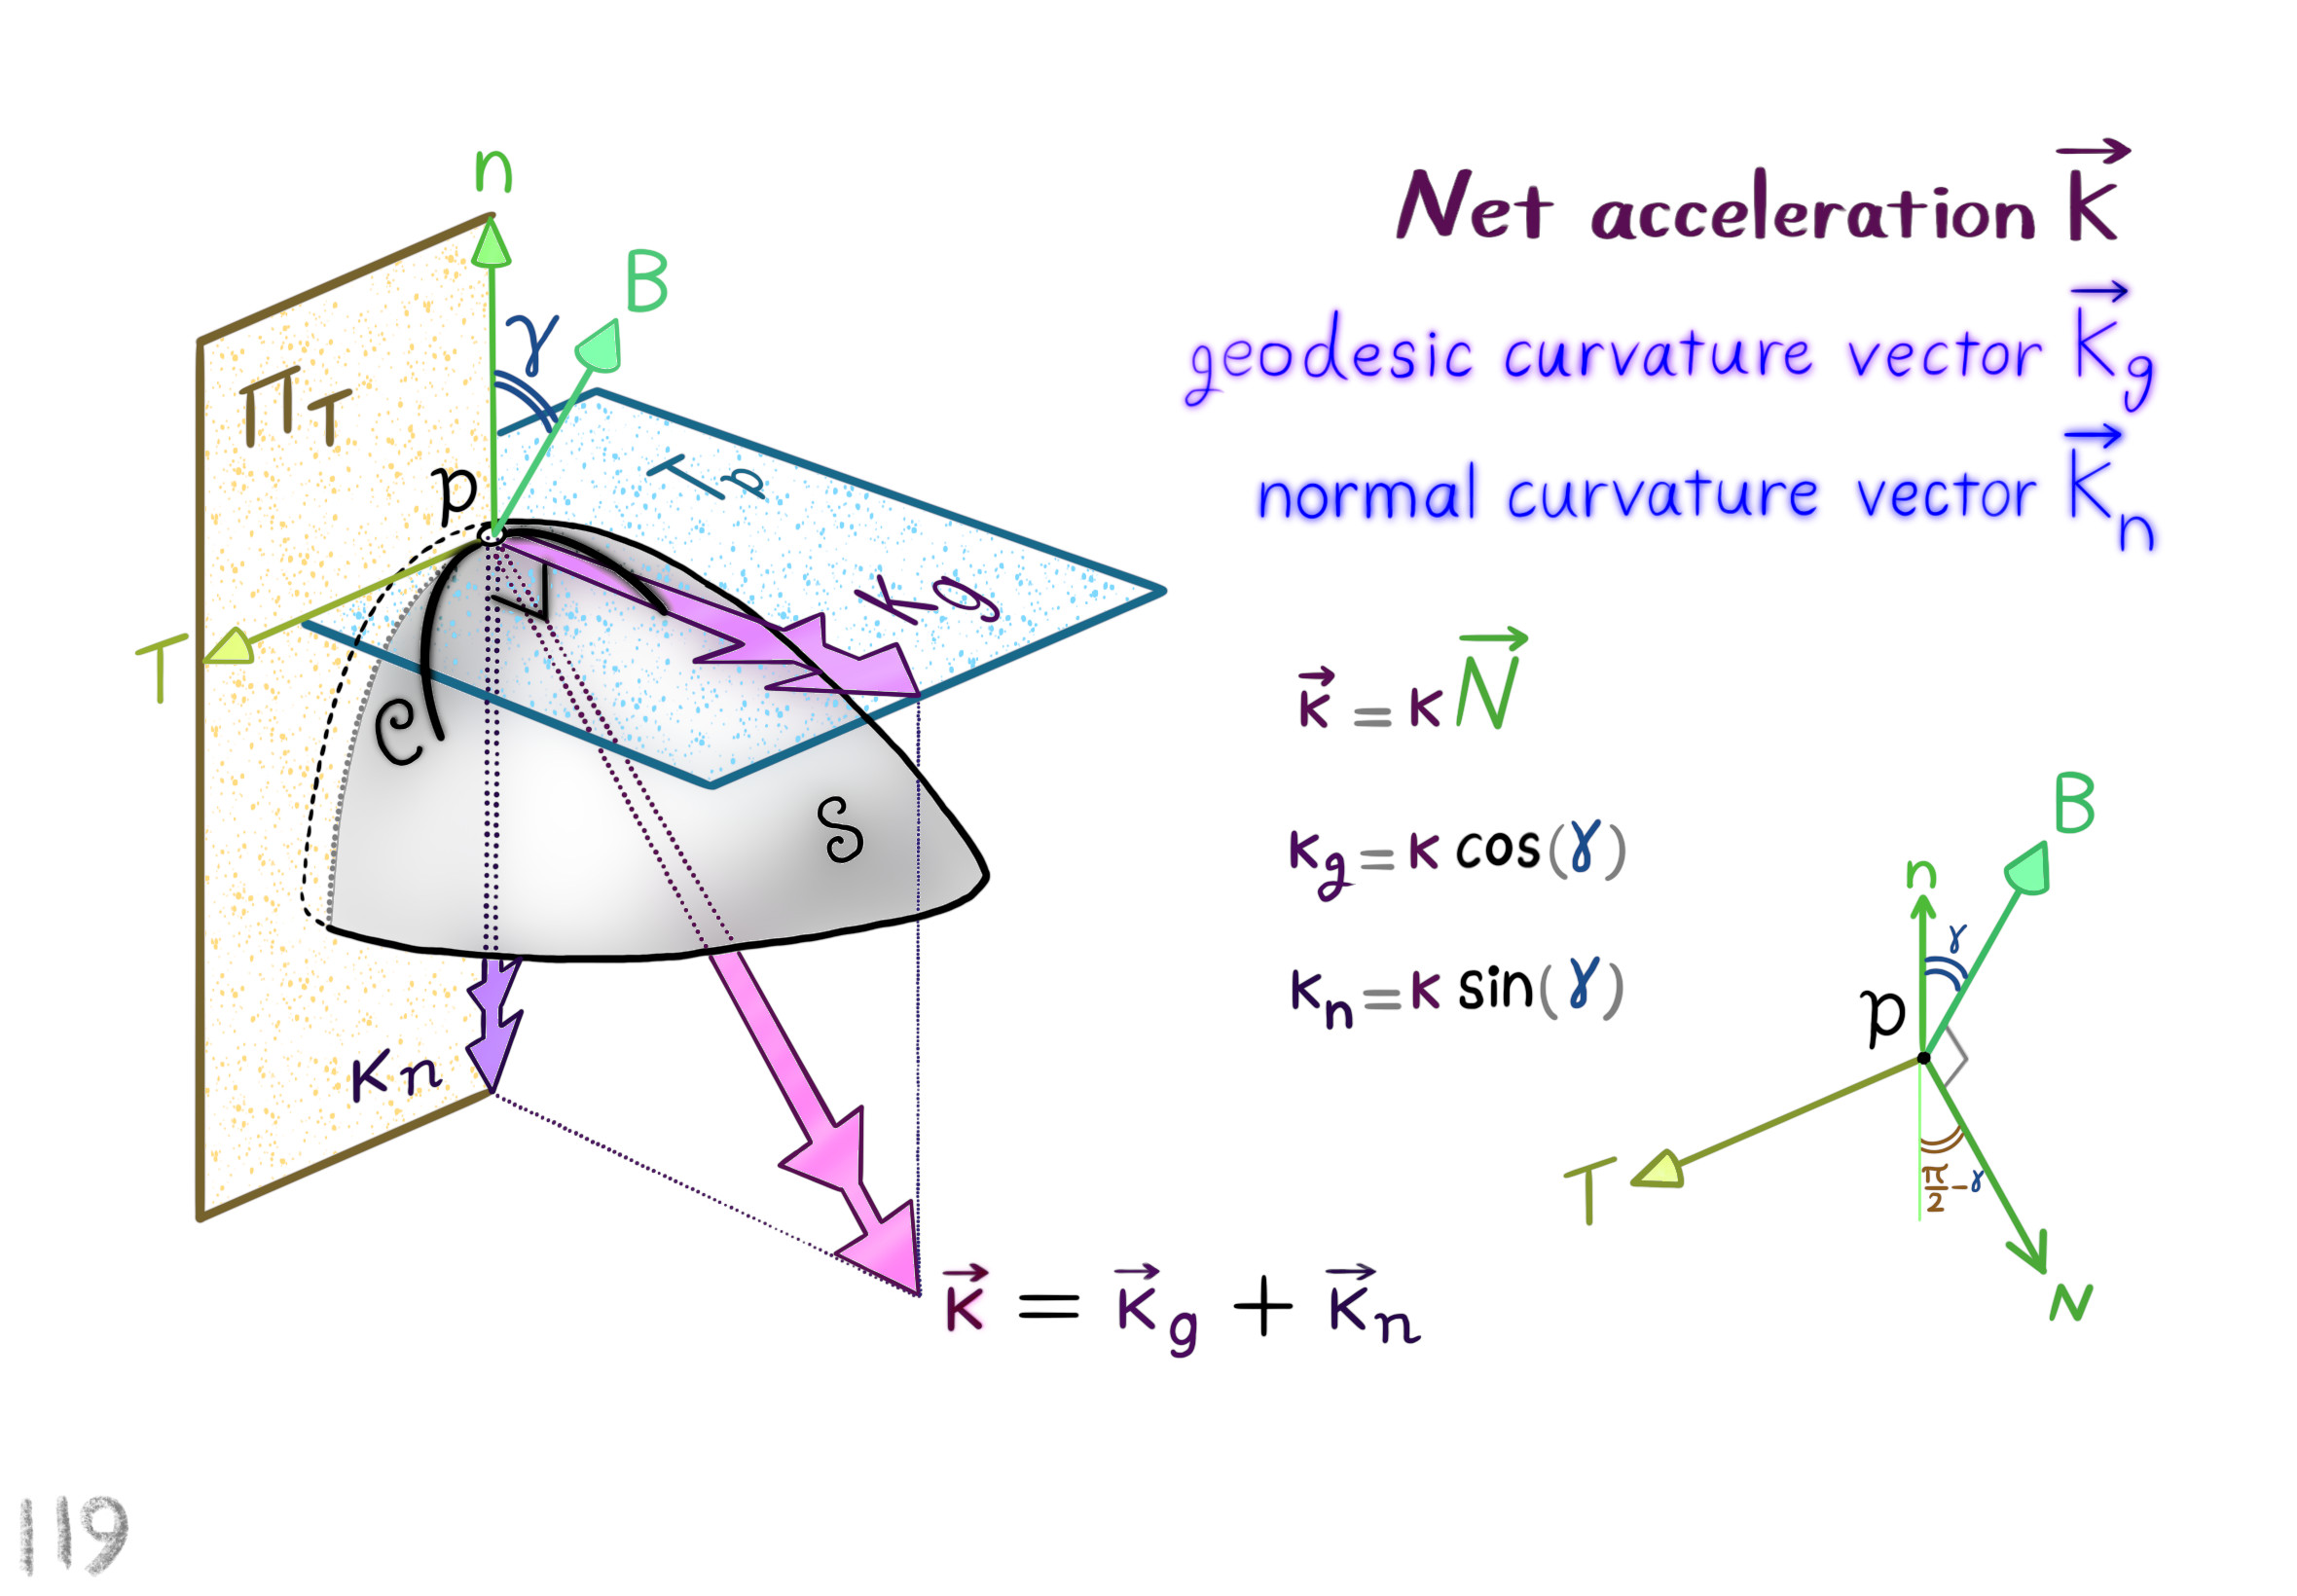 Net acceleration K⃗
geodesic curvature vector K⃗g
normal curvature vector K⃗n
n
B
γ
ΠT
Tp
p
Kg
T
C
S
κn
κ⃗ = κ⃗g + κ⃗n
κ⃗ = κ N⃗
κg = κ cos(γ)
κn = κ sin(γ)
B
n
γ
p
T
π/2 - γ
N
119